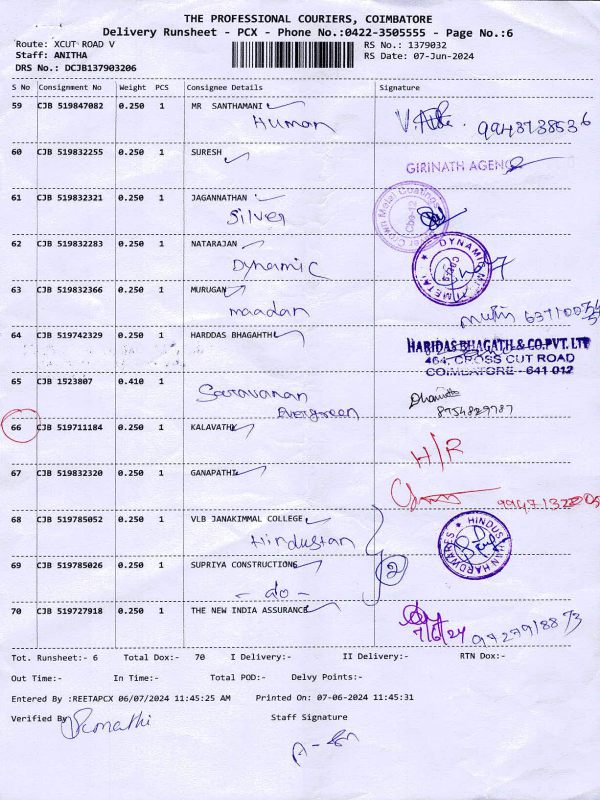 THE PROFESSIONAL COURIERS, COIMBATORE
Delivery Runsheet - PCX - Phone No.:0422-3505555 - Page No.:6
Route: XCUT ROAD V RS No.: 1379032
Staff: ANITHA RS Date: 07-Jun-2024
DRS No.: DCJB137903206
S No Consignment No Weight PCS Consignee Details Signature
59 CJB 519847082 0.250 1 MR SANTHAMANI
Human
60 CJB 519832255 0.250 1 SURESH
GIRINATH AGENC
61 CJB 519832321 0.250 1 JAGANNATHAN
Silver
Crown Metal Coatings
Cbe-12
62 CJB 519832283 0.250 1 NATARAJAN
Dynamic
DYNAMI
METAL
63 CJB 519832366 0.250 1 MURUGAN
maadan
64 CJB 519742329 0.250 1 HARDDAS BHAGAHTH
HARIDAS BHAGATH & CO.PVT. LTD
464, CROSS CUT ROAD
COIMBATORE - 641 012
65 CJB 1523807 0.410 1
Saravanan
Evergreen
66 CJB 519711184 0.250 1 KALAVATHI
H/R
67 CJB 519832320 0.250 1 GANAPATHI
68 CJB 519785052 0.250 1 VLB JANAKIMMAL COLLEGE
Hindustan
HINDUSTHAN HARDWARES
69 CJB 519785026 0.250 1 SUPRIYA CONSTRUCTIONS
2
- do -
70 CJB 519727918 0.250 1 THE NEW INDIA ASSURANCE
7/6/24
Tot. Runsheet:- 6 Total Dox:- 70 I Delivery:- II Delivery:- RTN Dox:-
Out Time:- In Time:- Total POD:- Delvy Points:-
Entered By :REETAPCX 06/07/2024 11:45:25 AM Printed On: 07-06-2024 11:45:31
Verified By Staff Signature